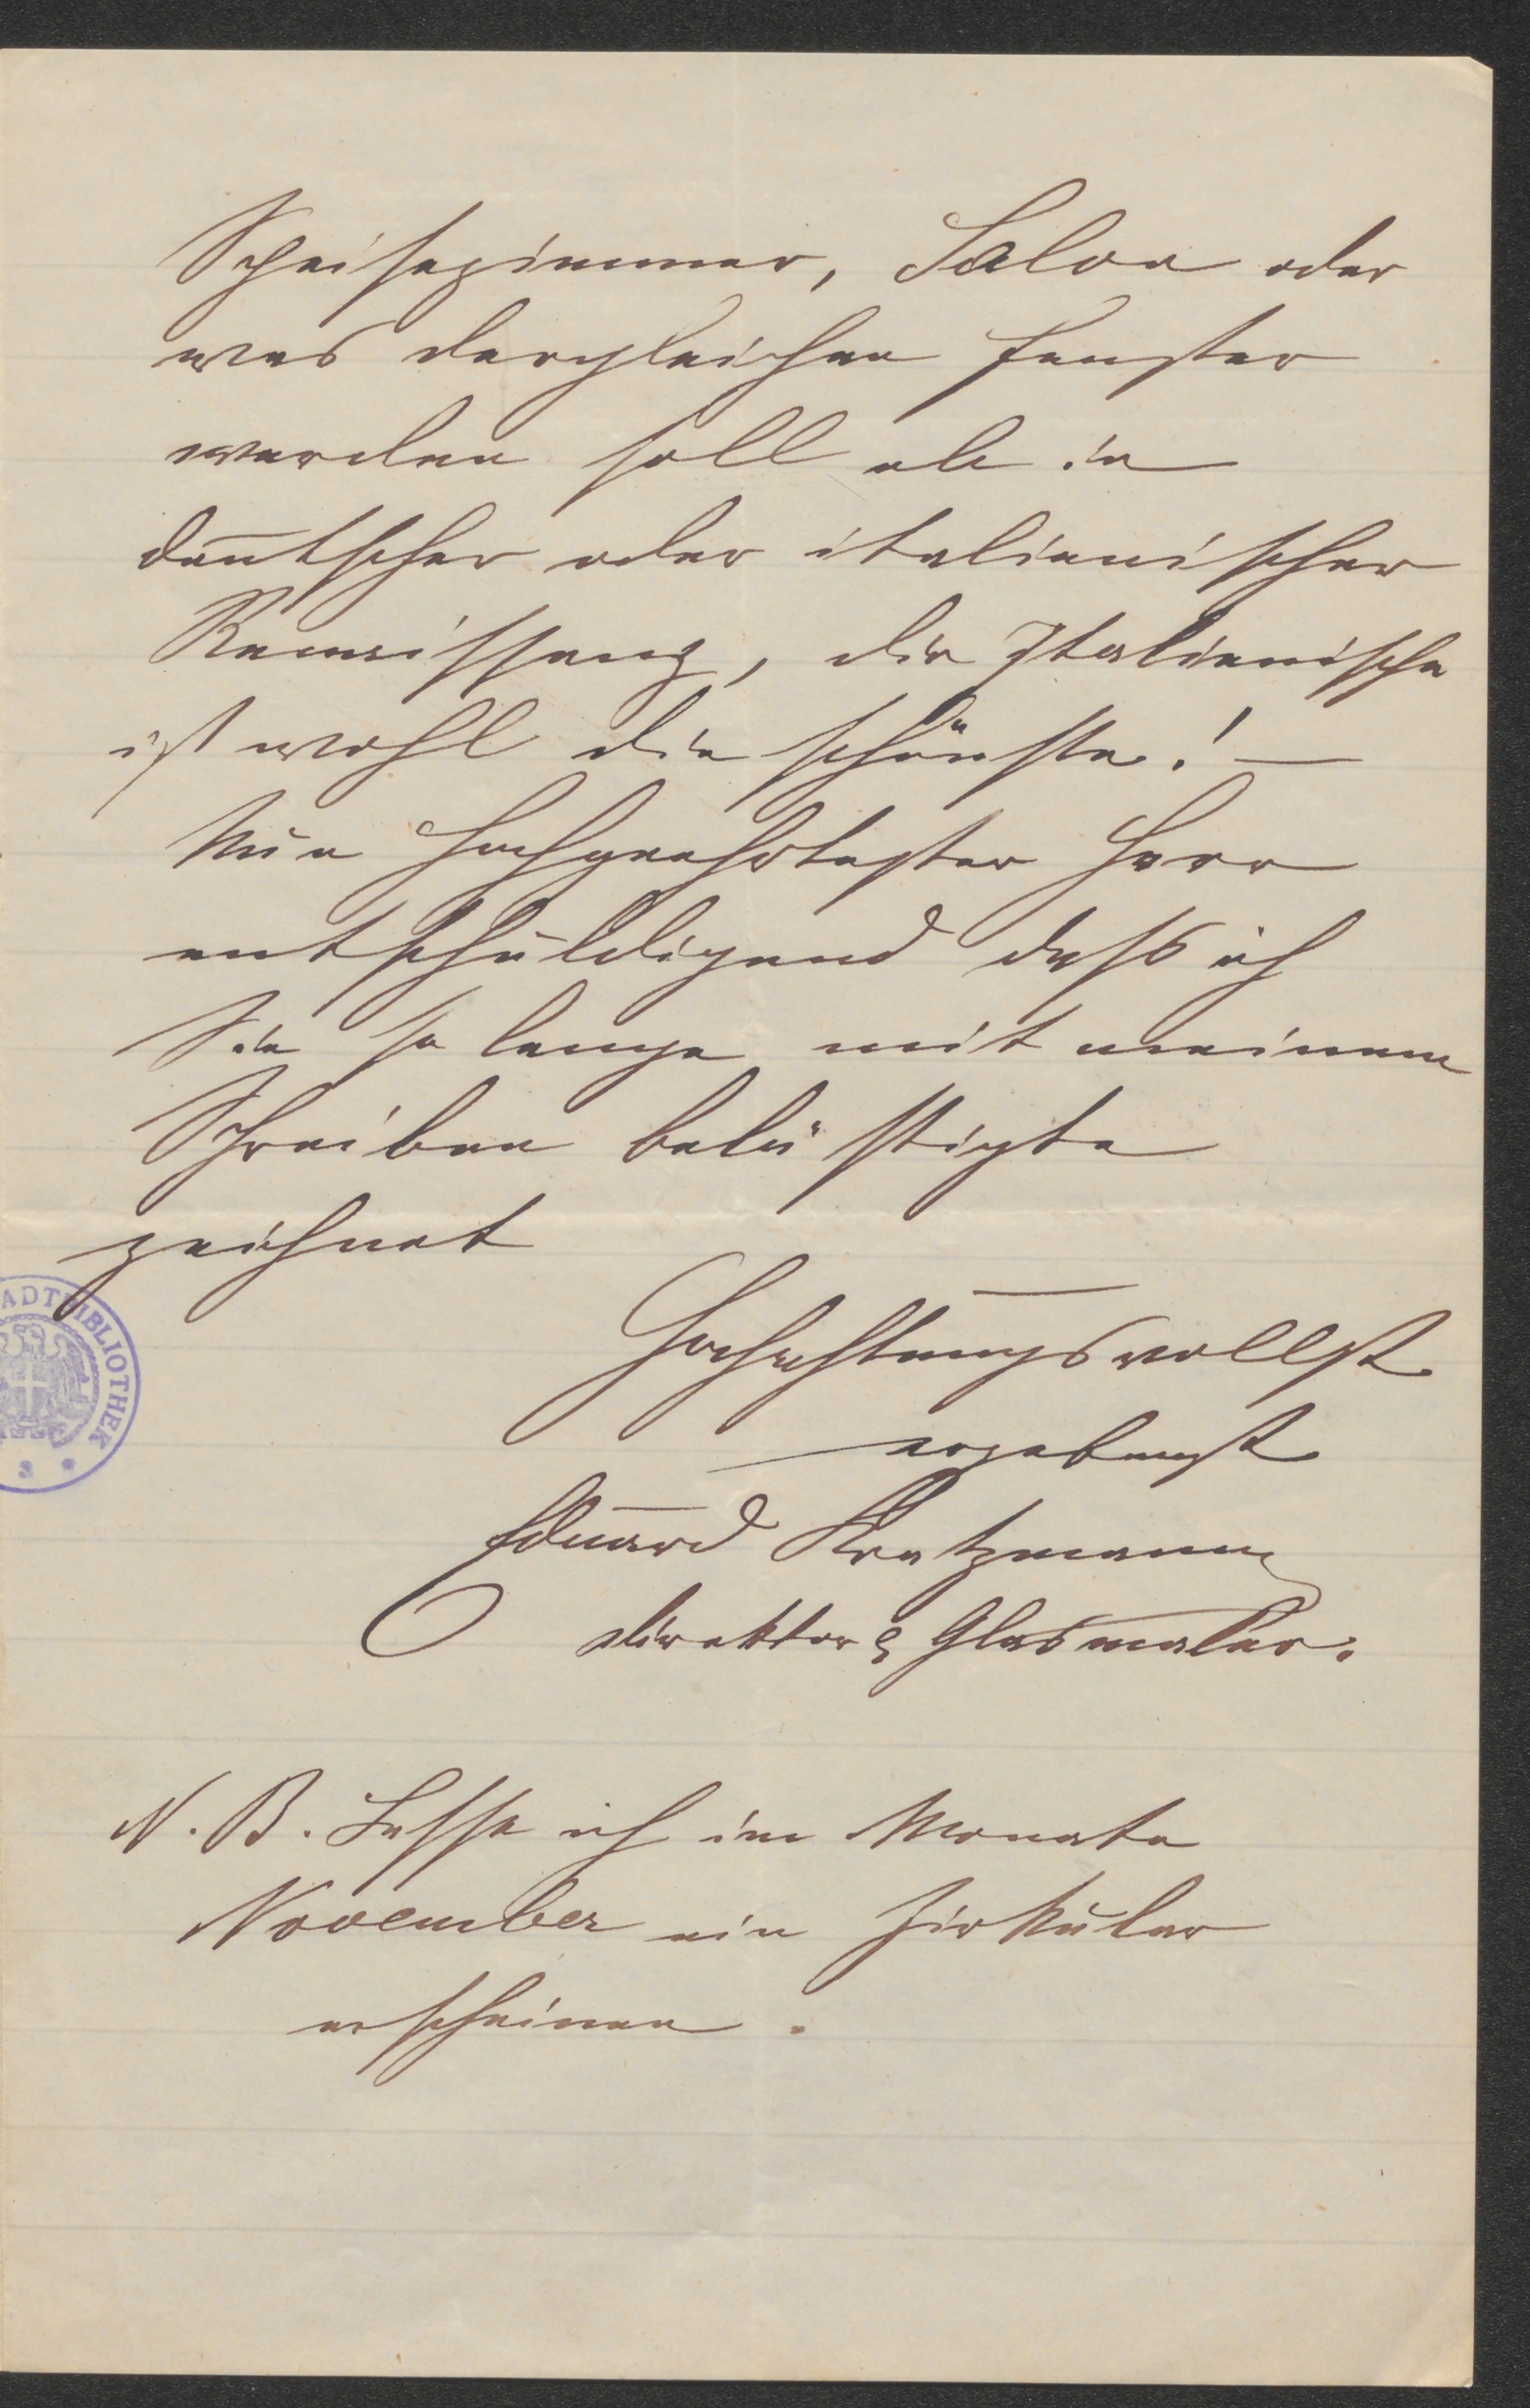 Speisezimmer, Salon oder
was dergleichen Fenster
werden soll ob in
deutscher oder italienischer
Renaissanz, die Italienische
ist wohl die schönste! —
Nun hochgeehrtester Herr
entschuldigend daß ich
Sie so lange mit meinem
Schreiben belästigte
zeichnet
Hochachtungsvollst
ergebenst
Eduard Kratzmann
Direktor & Glasmaler.
N. B. Lasse ich im Monate
November ein Zirkular
erscheinen.
ADTBIBLIOTHEK